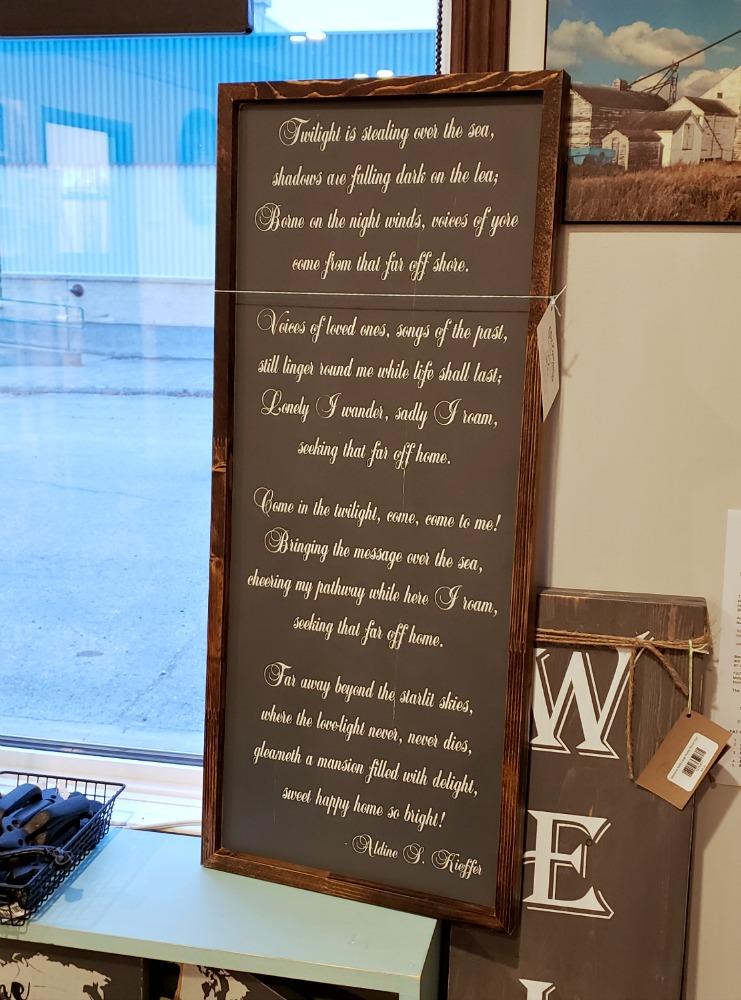 Twilight is stealing over the sea,
shadows are falling dark on the lea;
Borne on the night winds, voices of yore
come from that far off shore.
Voices of loved ones, songs of the past,
still linger round me while life shall last;
Lonely I wander, sadly I roam,
seeking that far off home.
Come in the twilight, come, come to me!
Bringing the message over the sea,
cheering my pathway while here I roam,
seeking that far off home.
Far away beyond the starlit skies,
where the love-light never, never dies,
gleameth a mansion filled with delight,
sweet happy home so bright!
- Aldine S. Kieffer
W
E